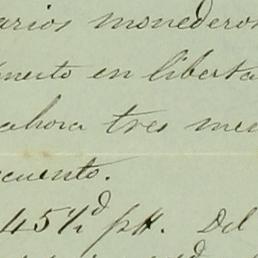 arios monederos
puesto en liberta
ahora tres me
cuento.
45½ d p#. Del